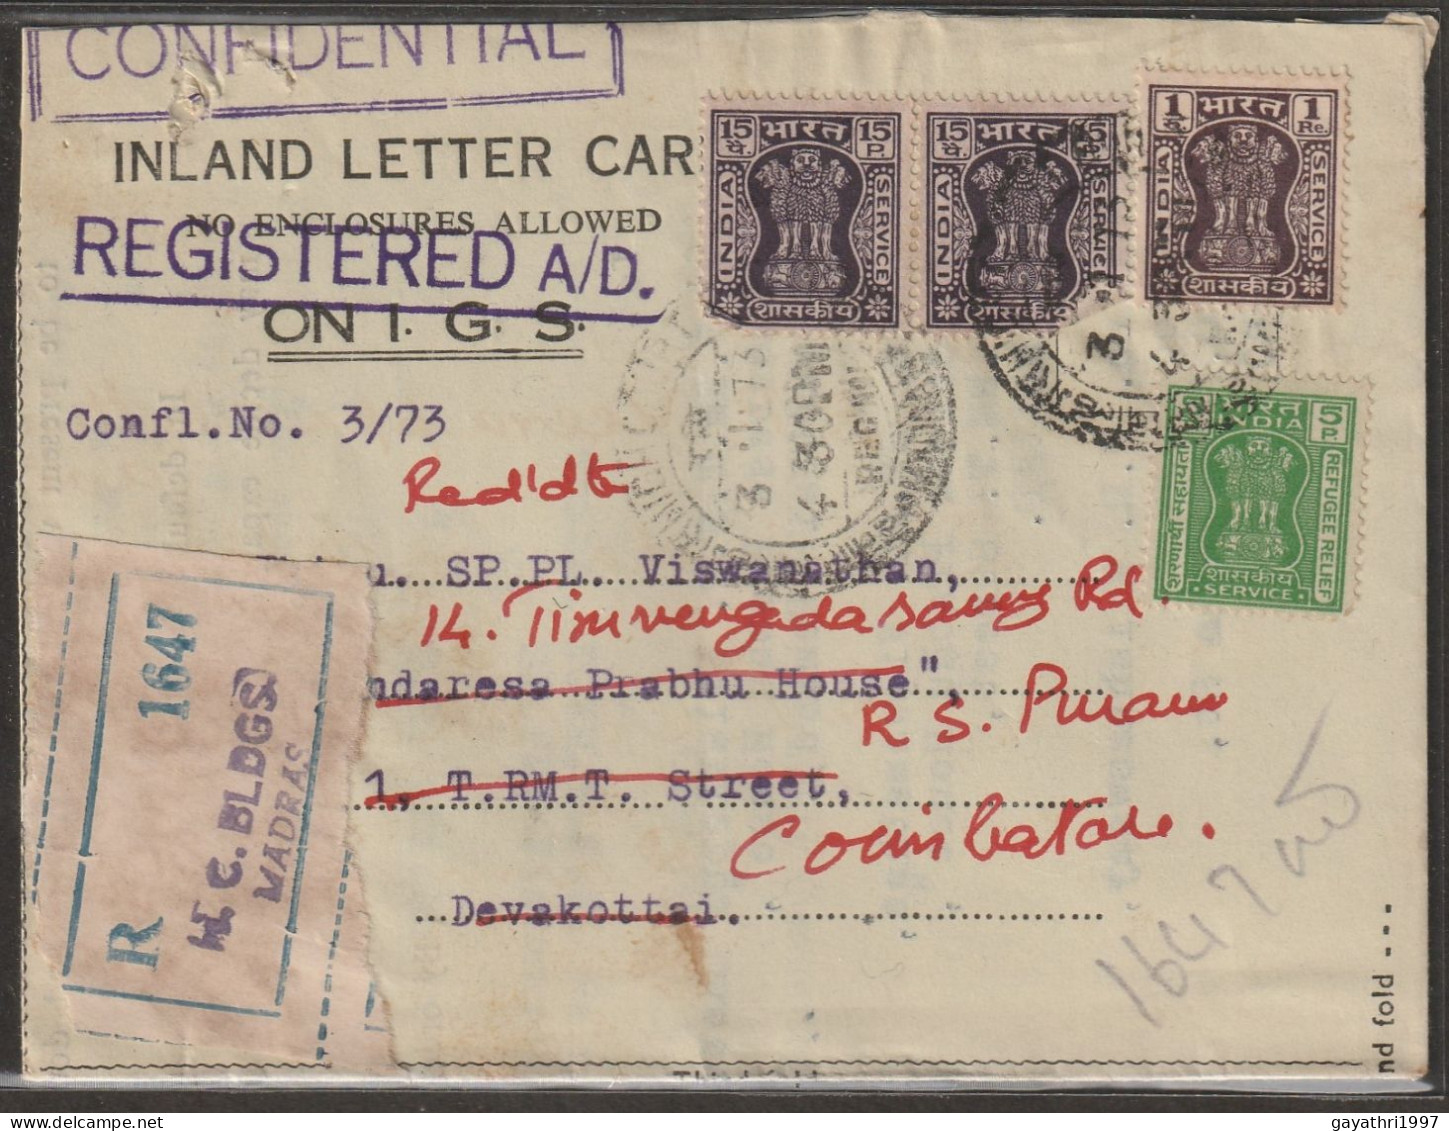 CONFIDENTIAL
INLAND LETTER CAR
NO ENCLOSURES ALLOWED
REGISTERED A/D.
ON I. G. S.
15 पै. भारत 15 P
INDIA SERVICE
शासकीय
15 पै. भारत 15 P
INDIA SERVICE
शासकीय
1 रु. भारत 1 Re.
INDIA SERVICE
शासकीय
भारत 5 P
INDIA
शरणार्थी सहायता REFUGEE RELIEF
शासकीय
SERVICE
3.1.73
4 30
Confl.No. 3/73
Red'd to
SP.PL. Viswanathan,
14. Tiruvengadasamy Rd.
ndaresa Prabhu House",
R S. Puram
1, T.RM.T. Street,
Coimbatore.
Devakottai.
R 1647
H.C. BLDGS
MADRAS
1647
nd fold ---
Third fold
delcampe.net
gayathri1997